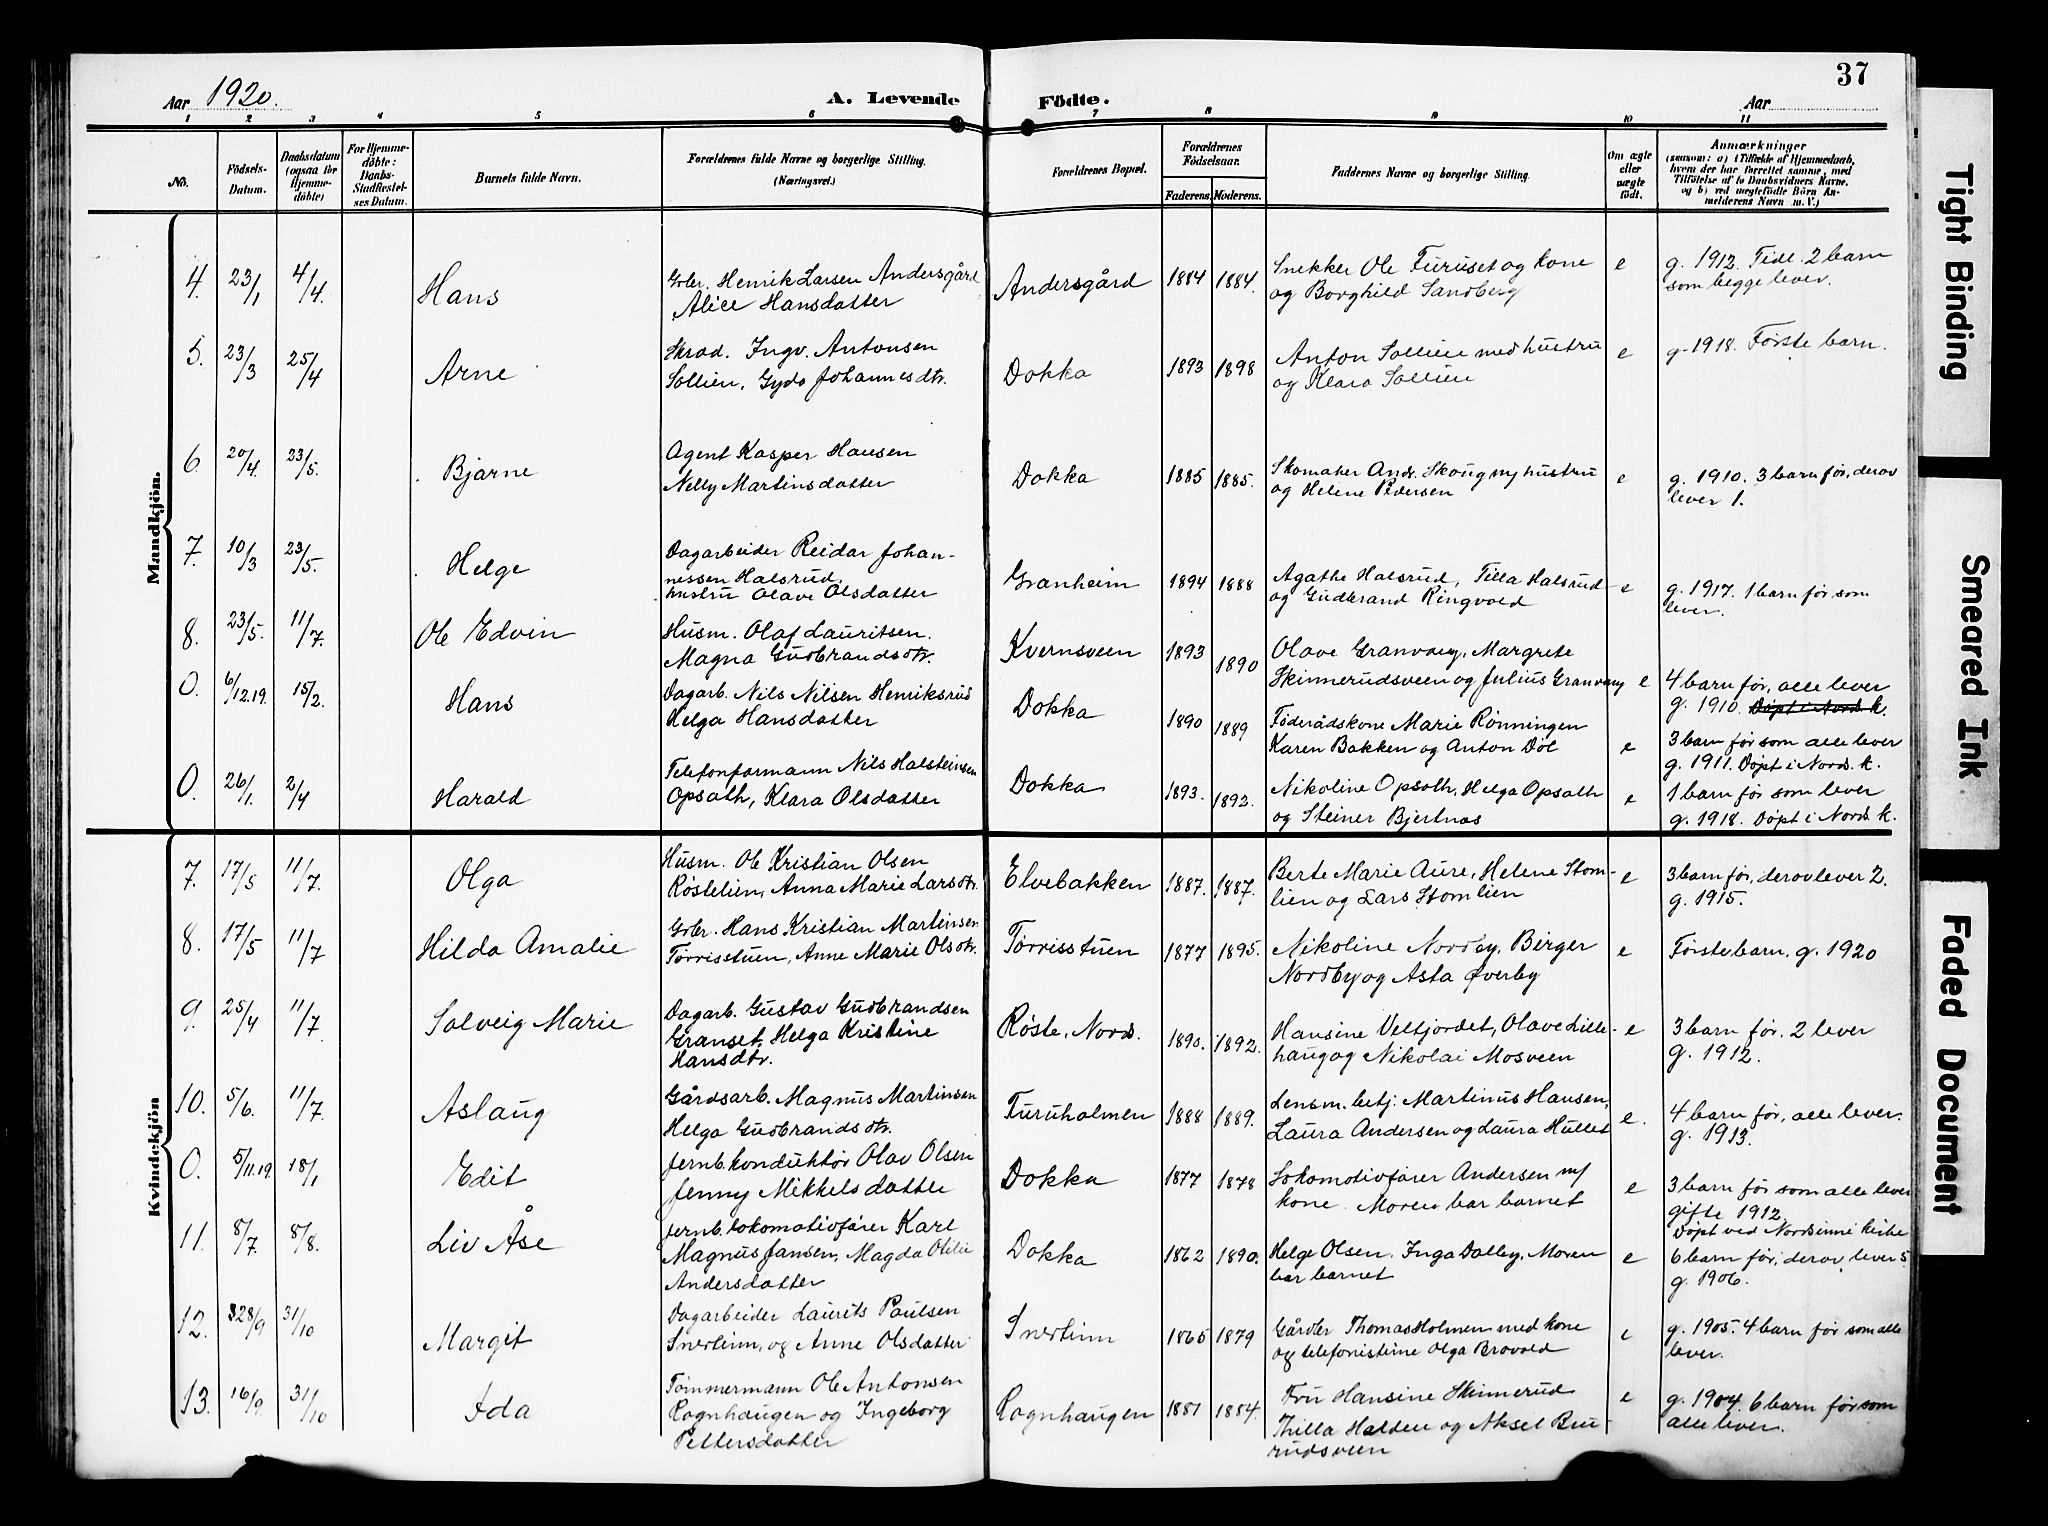 37
Aar 1920. A. Levende Födte. Aar
1 2 3 4 5 6 7 8 9 10 11
No. Födsels-Datum. Daabsdatum (ogsaa for Hjemme-döbte) For Hjemme-döbte: Daabs-Stadfæstel-ses Datum. Barnets fulde Navn. Forældrenes fulde Navne og borgerlige Stilling. (Næringsvei.) Forældrenes Bopæl. Forældrenes Födselsaar. Faderens. Moderens. Faddernes Navne og borgerlige Stilling. Om ægte eller uægte födt. Anmærkninger (saasom: a) i Tilfælde af Hjemmedaab, hvem der har forrettet samme, med Tilföielse af to Daabsvidners Navne, og b) ved uægtefödte Börn An-melderens Navn m. V.)
Mandkjön.
4. 23/1 4/4. Hans Gbr. Henrik Larsen Andersgård Andersgård 1884 1884. Snekker Ole Furuset og kone e g. 1912. Tidl. 2 barn
Alice Hansdatter og Borghild Sandberg som begge lever.
5. 23/3 25/4 Arne Skrad. Ingv. Antonsen Dokka 1893 1898 Anton Sollien med hustru e g. 1918. Første barn.
Sollien, Gyda Johannesdtr. og Klara Sollien
6. 20/4. 23/5. Bjarne Agent Kasper Hansen Dokka 1885 1885. Skomaker Ands. Skoug m/ hustru e g. 1910. 3 barn før, derav
Nelly Martinsdatter og Helene Pedersen lever 1.
7. 10/3 23/5. Helge Dagarbeider Reidar Johan- Granheim 1894 1888 Agathe Halsrud, Tilla Halsrud e g. 1917. 1 barn før som
nessen Halsrud, og Gudbrand Ringvold lever.
hustru Olave Olsdatter
8. 23/5. 11/7 Ole Edvin Husm. Olaf Lauritsen. Kvernsveen 1893 1890 Olave Granvang, Margrete
Magna Gudbrandsdtr. Skinnerudsveen og Julius Granvang e 4 barn før, alle lever
g. 1910. Døpt i Nords. k.
0. 6/12.19. 15/2. Hans Dagarb. Nils Nilsen Henriksrud Dokka 1890 1889 Føderådskone Marie Rønningen
Helga Hansdatter Karen Bakken og Anton Døl e 3 barn før som alle lever
g. 1911. Døpt i Nords. k.
0. 26/1. 2/4 Harald Telefonformann Nils Halsteinsen Dokka 1893. 1892. Nikoline Opsath, Helga Opsath e 1 barn før som lever
Opsath, Klara Olsdatter og Steiner Bjertnæs g. 1918. Døpt i Nords. k.
Kvindekjön
7. 17/5 11/7. Olga Husm. Ole Kristian Olsen Elvebakken 1887. 1887. Berte Marie Aure, Helene Stom- e 3 barn før, derav lever 2.
Røstelien, Anna Marie Larsdtr. lien og Lars Stomlien g. 1915.
8. 17/5 11/7 Hilda Amalie Gbr. Hans Kristian Martinsen Tørrisstuen 1877 1895. Nikoline Nordby, Birger e Første barn, g. 1920
Tørrisstuen, Anne Marie Olsdtr. Nordby og Asta Øverby
9. 25/4 11/7 Solveig Marie Dagarb. Gustav Gudbrandsen Røste, Nords. 1890. 1892. Hansine Veltjordet, Olave Lille- e 3 barn før. 2 lever
Granset, Helga Kristine haug og Nikolai Mosveen g. 1912.
Hansdtr.
10. 5/6. 11/7. Aslaug Gårdsarb. Magnus Martinsen Furuholmen 1888 1889. Lensm. betj. Martinus Hansen, e. 4 barn før, alle lever.
Helga Gudbrandsdtr. Laura Andersen og Laura Hullet g. 1913.
0. 5/11.19 18/1 Edit Jernb.konduktør Olav Olsen Dokka 1877 1878 Lokomotivfører Andersen m/ e 3 barn før som alle lever
Jenny Mikkelsdatter kone. Moren bar barnet gifte 1912
Døpt ved Nordsinni kirke
11. 8/7. 8/8. Liv Åse Jernb.lokomotivfører Karl Dokka 1862 1890. Helge Olsen, Inga Dalby, Moren e 6 barn før, derav lever 5
Magnus Jansen, Magda Otilie bar barnet g. 1906.
Andersdatter
12. 28/9 31/10 Margit Dagarbeider Laurits Paulsen Snertinn 1865 1879 Gårdbr. Thomas Holmen med kone e g. 1905. 4 barn før som alle
Snertinn, og Anne Olsdatter og telefonistinne Olga Brovold lever.
13. 16/9. 31/10 Ida Tømmermann Ole Antonsen Rognhaugen 1881 1884. Fru Hansine Skinnerud e g. 1904. 6 barn før som
Rognhaugen og Ingeborg Thilla Halden og Aksel Bru- alle lever.
Pettersdatter rudsveen
Tight Binding
Smeared Ink
Faded Document